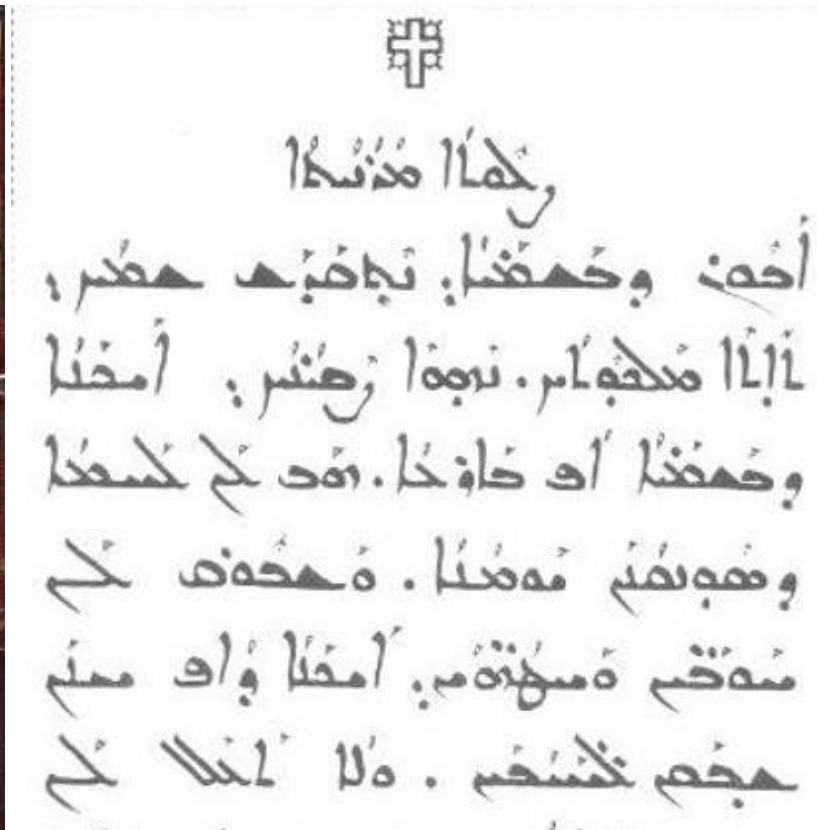 ܨܠܽܘܬܳܐ ܡܳܪܳܢܳܝܬܳܐ
ܐܰܒܽܘܢ ܕܒܰܫܡܰܝܳܐ. ܢܶܬܩܰܕܰܫ ܫܡܳܟ.
ܬܺܐܬܶܐ ܡܰܠܟܽܘܬܳܟ. ܢܶܗܘܶܐ ܨܶܒܝܳܢܳܟ. ܐܰܝܟܰܢܳܐ
ܕܒܰܫܡܰܝܳܐ ܐܳܦ ܒܰܐܪܥܳܐ. ܗܰܒ ܠܰܢ ܠܰܚܡܳܐ
ܕܣܽܘܢܩܳܢܰܢ ܝܰܘܡܳܢܳܐ. ܘܰܫܒܽܘܩ ܠܰܢ
ܚܰܘ̈ܒܰܝܢ ܘܰܚܛܳܗ̈ܰܝܢ. ܐܰܝܟܰܢܳܐ ܕܳܐܦ ܚܢܰܢ
ܫܒܰܩܢ ܠܚܰܝܳܒ̈ܰܝܢ. ܘܠܳܐ ܠܰܢ